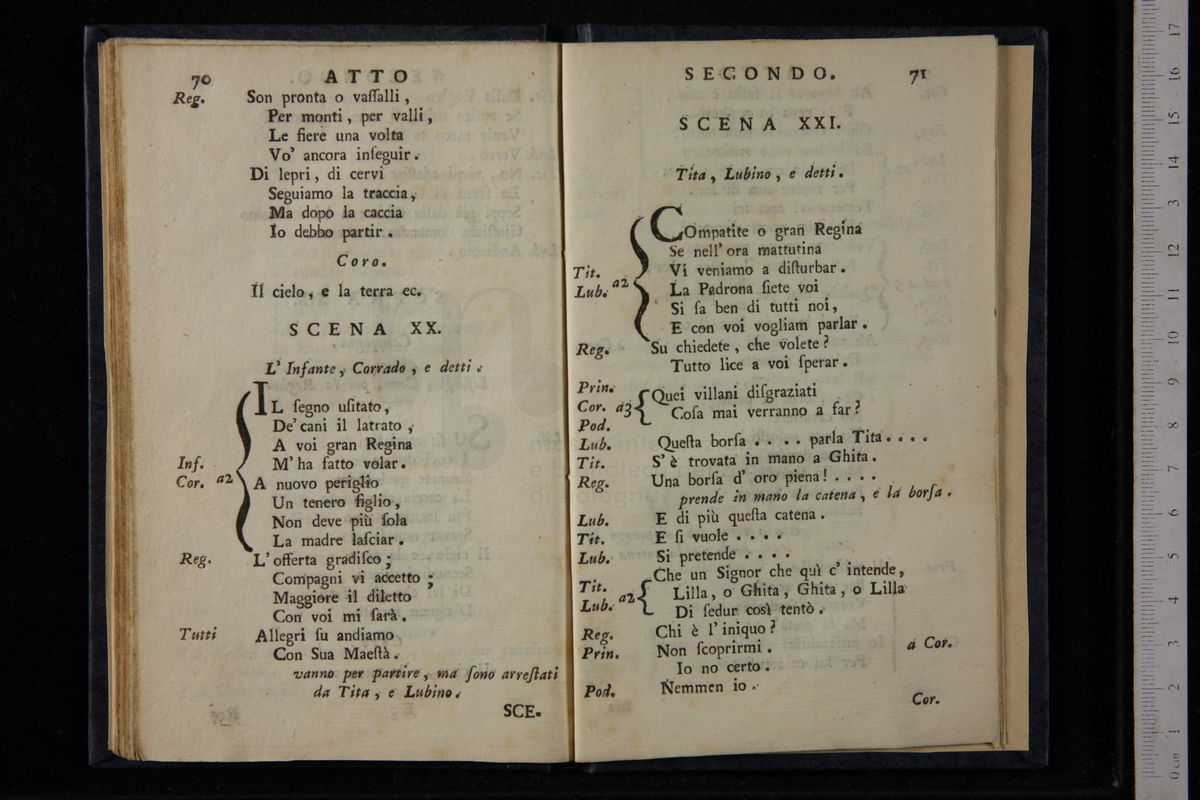 70 ATTO
Reg. Son pronta o vaſſalli,
Per monti, per valli,
Le fiere una volta
Vo' ancora inſeguir.
Di lepri, di cervi
Seguiamo la traccia,
Ma dopo la caccia
Io debbo partir.
Coro.
Il cielo, e la terra ec.
SCENA XX.
L' Infante, Corrado, e detti.
IL ſegno uſitato,
De' cani il latrato,
A voi gran Regina
Inf. M' ha fatto volar.
Cor. a2 A nuovo periglio
Un tenero figlio,
Non deve più ſola
La madre laſciar.
Reg. L' offerta gradiſco;
Compagni vi accetto;
Maggiore il diletto
Con voi mi ſarà.
Tutti Allegri ſu andiamo
Con Sua Maeſtà.
vanno per partire, ma ſono arreſtati
da Tita, e Lubino.
SCE-
SECONDO. 71
SCENA XXI.
Tita, Lubino, e detti.
COmpatite o gran Regina
Se nell' ora mattutina
Tit. Vi veniamo a diſturbar.
Lub. a2 La Padrona ſiete voi
Si ſa ben di tutti noi,
E con voi vogliam parlar.
Reg. Su chiedete, che volete?
Tutto lice a voi ſperar.
Prin. Quei villani diſgraziati
Cor. a3 Coſa mai verranno a far?
Pod.
Lub. Queſta borſa . . . . parla Tita . . . .
Tit. S' è trovata in mano a Ghita.
Reg. Una borſa d' oro piena! . . . .
prende in mano la catena, e la borſa.
Lub. E di più queſta catena.
Tit. E ſi vuole . . . .
Lub. Si pretende . . . .
Che un Signor che quì c' intende,
Tit. Lilla, o Ghita, Ghita, o Lilla
Lub. a2 Di ſedur così tentò.
Reg. Chi è l' iniquo?
Prin. Non ſcoprirmi. a Cor.
Io no certo.
Pod. Nemmen io.
Cor.